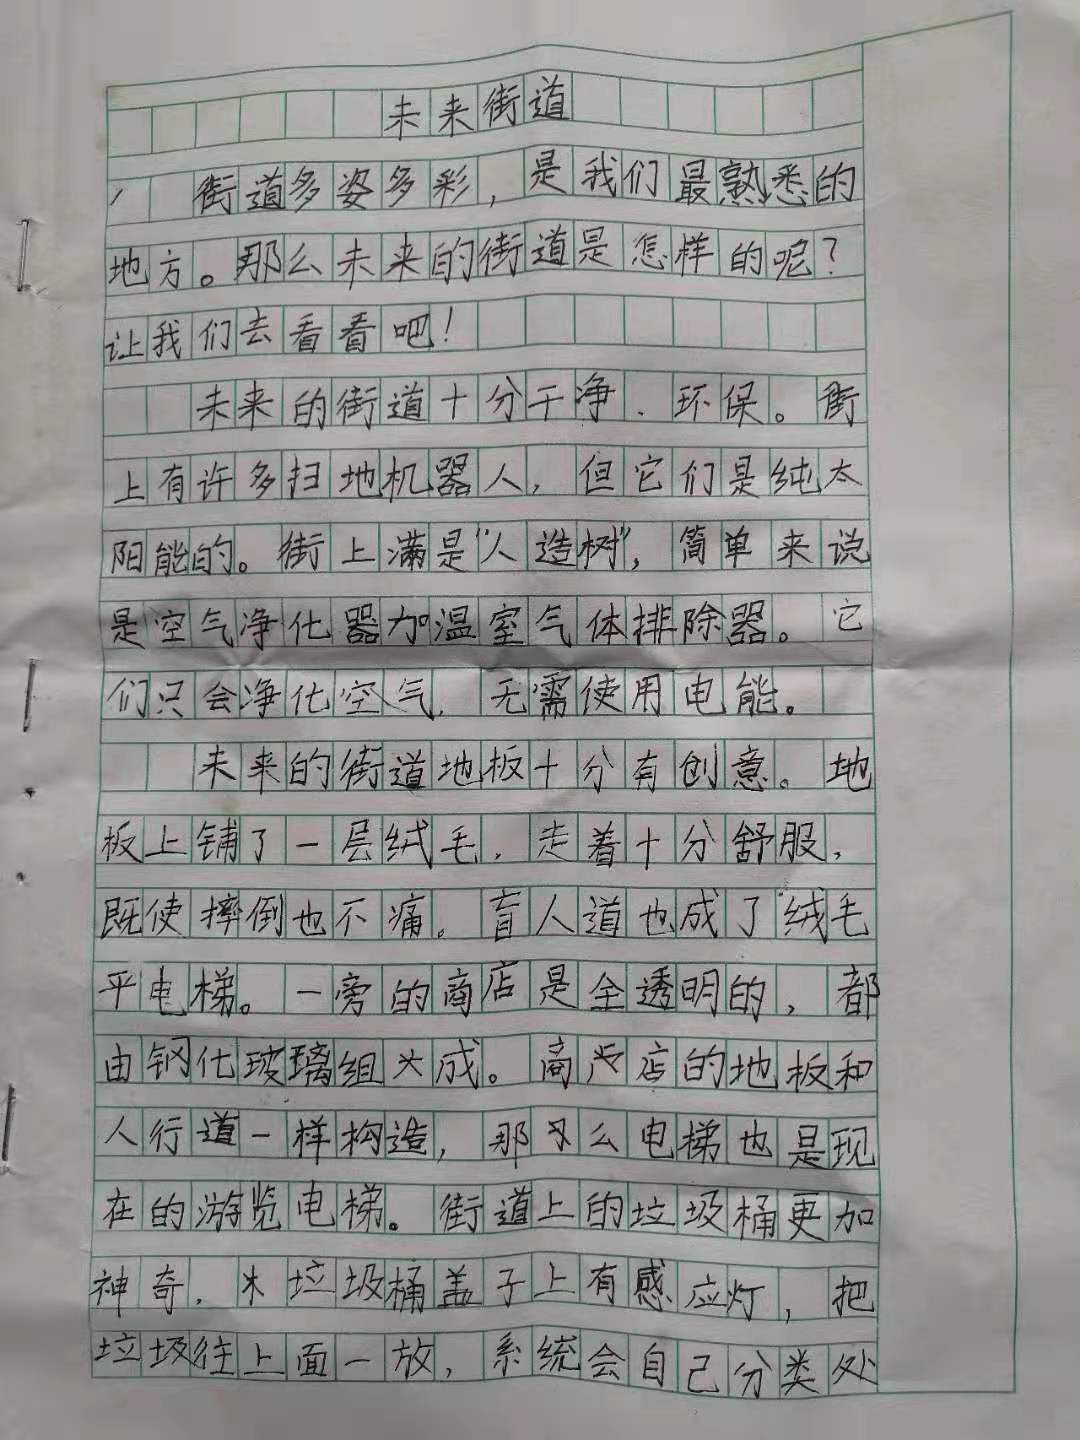 未来街道
街道多姿多彩，是我们最熟悉的
地方。那么未来的街道是怎样的呢？
让我们去看看吧！
未来的街道十分干净、环保。街
上有许多扫地机器人，但它们是纯太
阳能的。街上满是“人造树”，简单来说
是空气净化器加温室气体排除器。它
们只会净化空气，无需使用电能。
未来的街道地板十分有创意。地
板上铺了一层绒毛，走着十分舒服，
既使摔倒也不痛。盲人道也成了绒毛
平电梯。一旁的商店是全透明的，都
由钢化玻璃组成。商店的地板和
人行道一样构造，那么电梯也是现
在的游览电梯。街道上的垃圾桶更加
神奇，垃圾桶盖子上有感应灯，把
垃圾往上面一放，系统会自己分类处